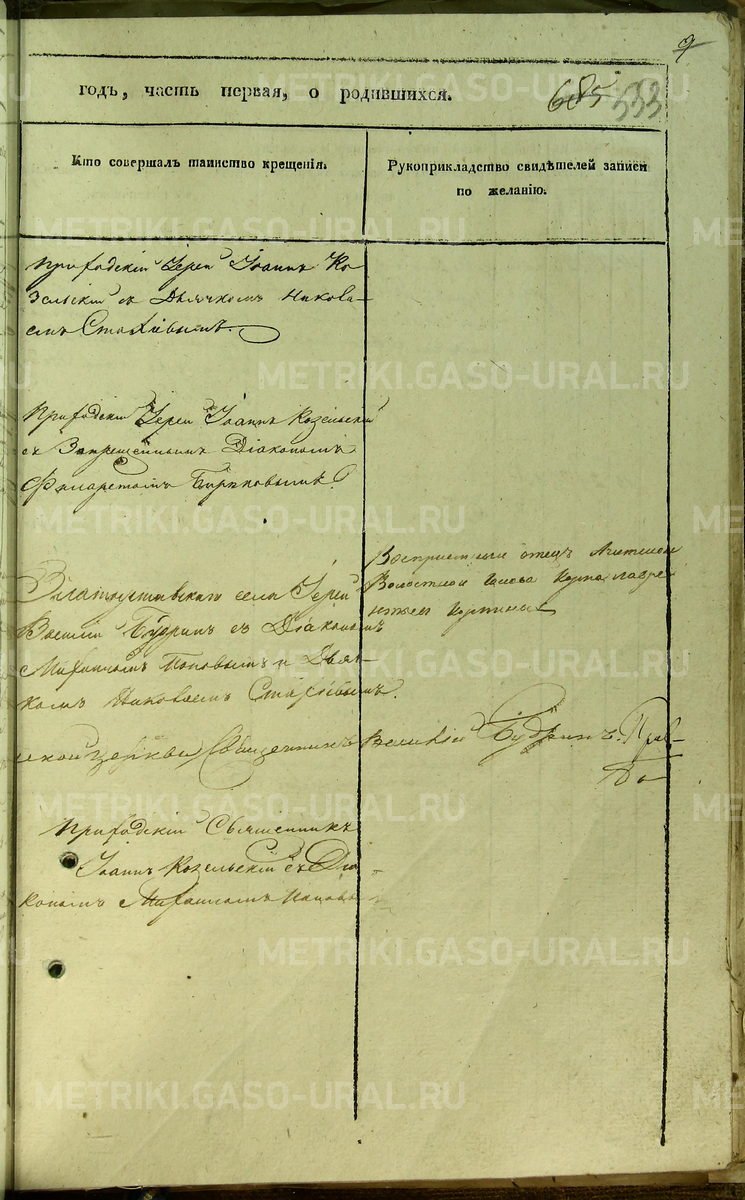 9
годъ, часть первая, о родившихся.
685 533
Кто совершалъ таинство крещенія.
Рукоприкладство свидѣтелей записи
по желанію.
Приходскій Іерей Іоаннъ Ко-
зельскій съ Дьячкомъ Никола-
емъ Стахіевымъ.
Приходскій Іерей Іоаннъ Козельскій
съ Запрещеннымъ Діакономъ
Филаретомъ Бирюковымъ.
села Іерей
Василій Будринъ съ Діакономъ
Михаиломъ Поповымъ и Дьяч-
комъ Николаемъ Стахіевымъ.
отецъ
Волостной Голова
церкви Священникъ Василій Будринъ.
Приходскій Священникъ
Іоаннъ Козельскій съ Діа-
кономъ Михаиломъ Поповы
METRIKI.GASO-URAL.RU